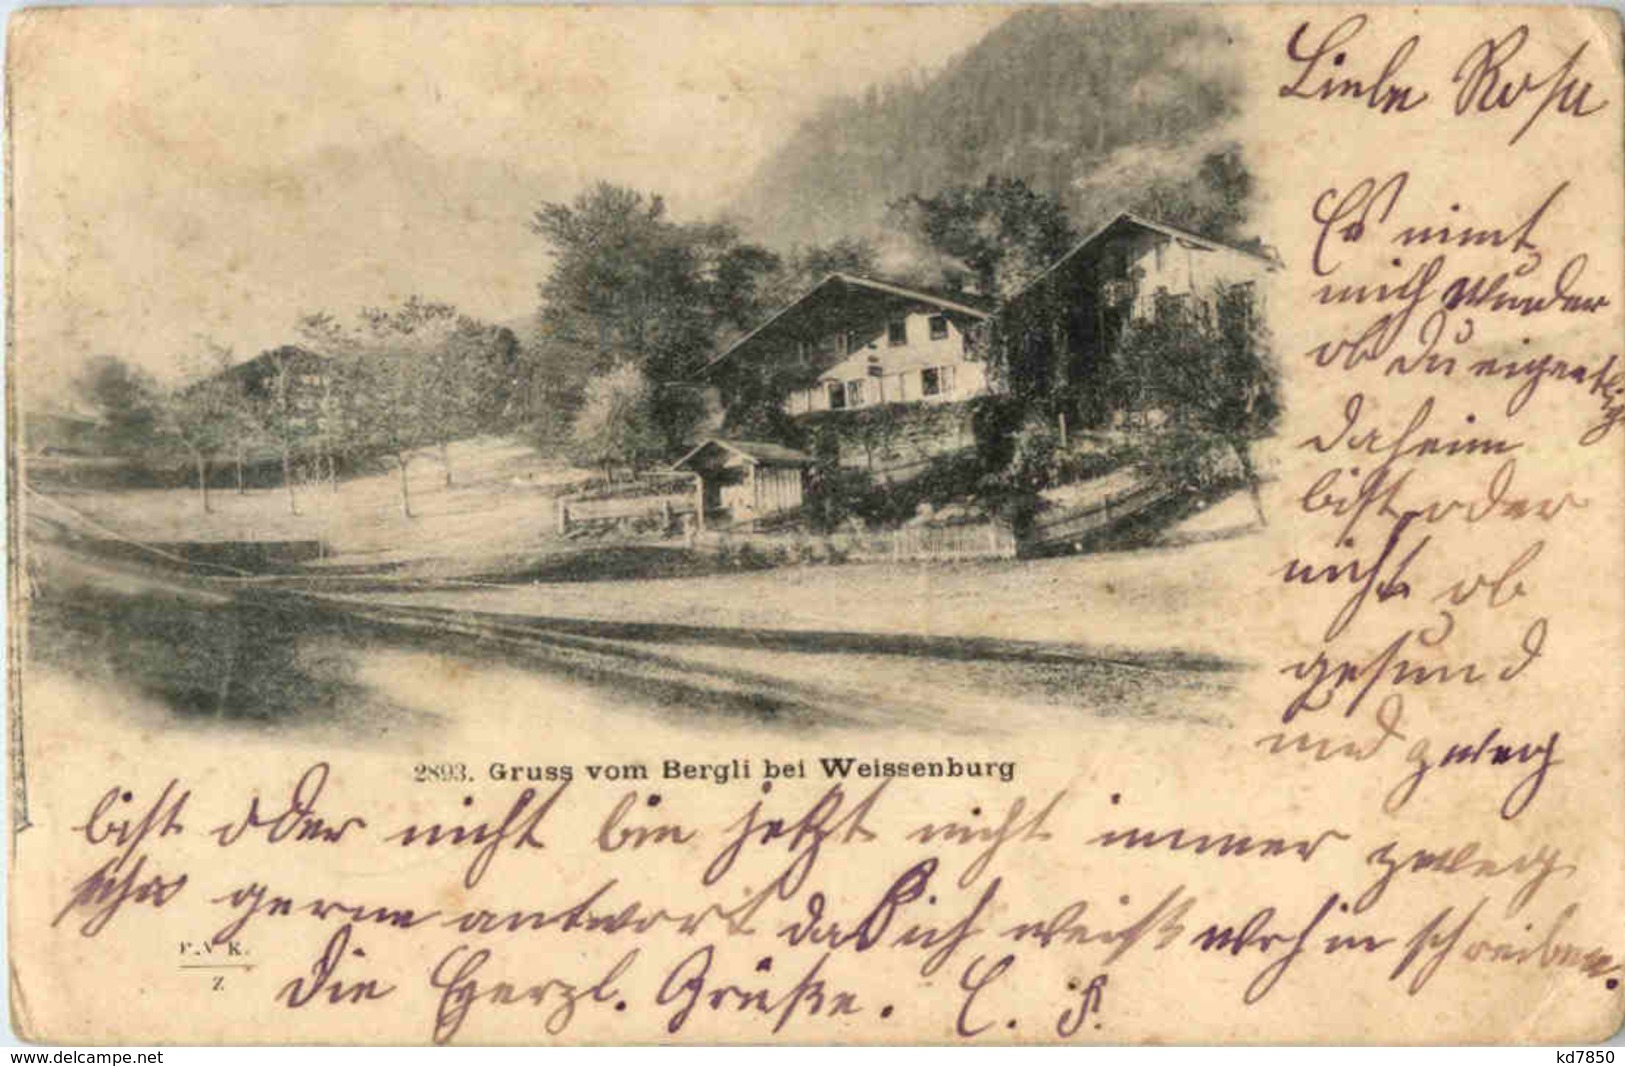 Liebe Rosa
Es nimt
mich Wunder
ob Du eigentlig
daheim
bist oder
nicht ob
gesund
und zweig
2893. Gruss vom Bergli bei Weissenburg
bist oder nicht bin jetzt nicht immer zweig
gerne antwort das ich weiß wohin schreiben.
P.V.K.
Z
Die Herzl. Grüße. C. F.
www.delcampe.net
kd7850